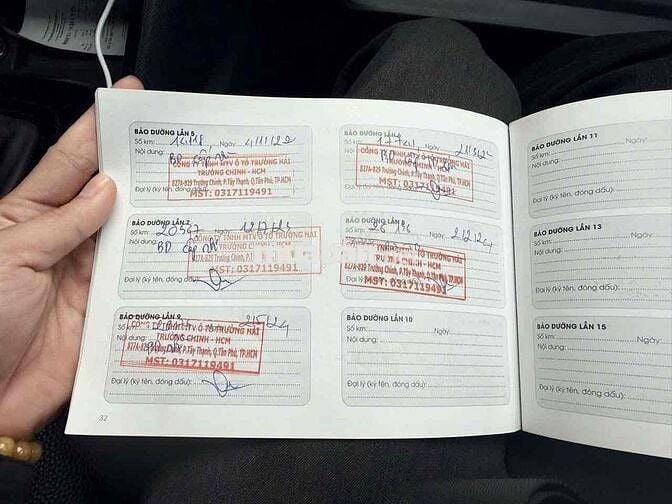 BẢO DƯỠNG LẦN 5
Số km: Ngày 4/11/22
Nội dung: BD cấp
CÔNG TY TNHH MTV Ô TÔ TRƯỜNG HẢI
TRƯỜNG CHINH - HCM
827A-829 Trường Chinh, P.Tây Thạnh, Q.Tân Phú, TP.HCM
MST: 0317119491
Đại lý (ký
BẢO DƯỠNG LẦN
Số km: Ngày
Nội dung: BD
CÔNG TY TNHH MTV Ô TÔ TRƯỜNG HẢI
TRƯỜNG CHINH - HCM
827A-829 Trường Chinh, P.Tây Thạnh, Q.Tân Phú, TP.HCM
MST: 0317119491
Đại lý (ký tên, đóng dấu)
BẢO DƯỠNG LẦN 7
Số km: Ngày
Nội dung: BD cấp
CÔNG TY TNHH MTV Ô TÔ TRƯỜNG HẢI
TRƯỜNG CHINH - HCM
827A-829 Trường Chinh, P.T
MST: 0317119491
Đại lý (ký tên, đóng dấu):
BẢO DƯỠNG LẦN 8
Số km: Ngày
Nội dung:
TNHH MTV Ô TÔ TRƯỜNG HẢI
CHINH - HCM
827A-829 Trường Chinh, P.Tây Thạnh, Q.Tân Phú, TP.HCM
MST: 0317119491
Đại lý (ký
BẢO DƯỠNG LẦN 9
Số km: Ngày
CÔNG TY TNHH MTV Ô TÔ TRƯỜNG HẢI
TRƯỜNG CHINH - HCM
827A-829 Trường Chinh, P.Tây Thạnh, Q.Tân Phú, TP.HCM
MST: 0317119491
Đại lý (ký tên, đóng dấu):
BẢO DƯỠNG LẦN 10
Số km: Ngày
Nội dung:
Đại lý (ký tên, đóng dấu):
32
BẢO DƯỠNG LẦN 11
Số km:
Nội dung:
Đại lý (ký tên, đóng dấu):
BẢO DƯỠNG LẦN 13
Số km:
Nội dung:
Đại lý (ký tên, đóng dấu):
BẢO DƯỠNG LẦN 15
Số km:
Nội dung:
Đại lý (ký tên, đóng dấu):